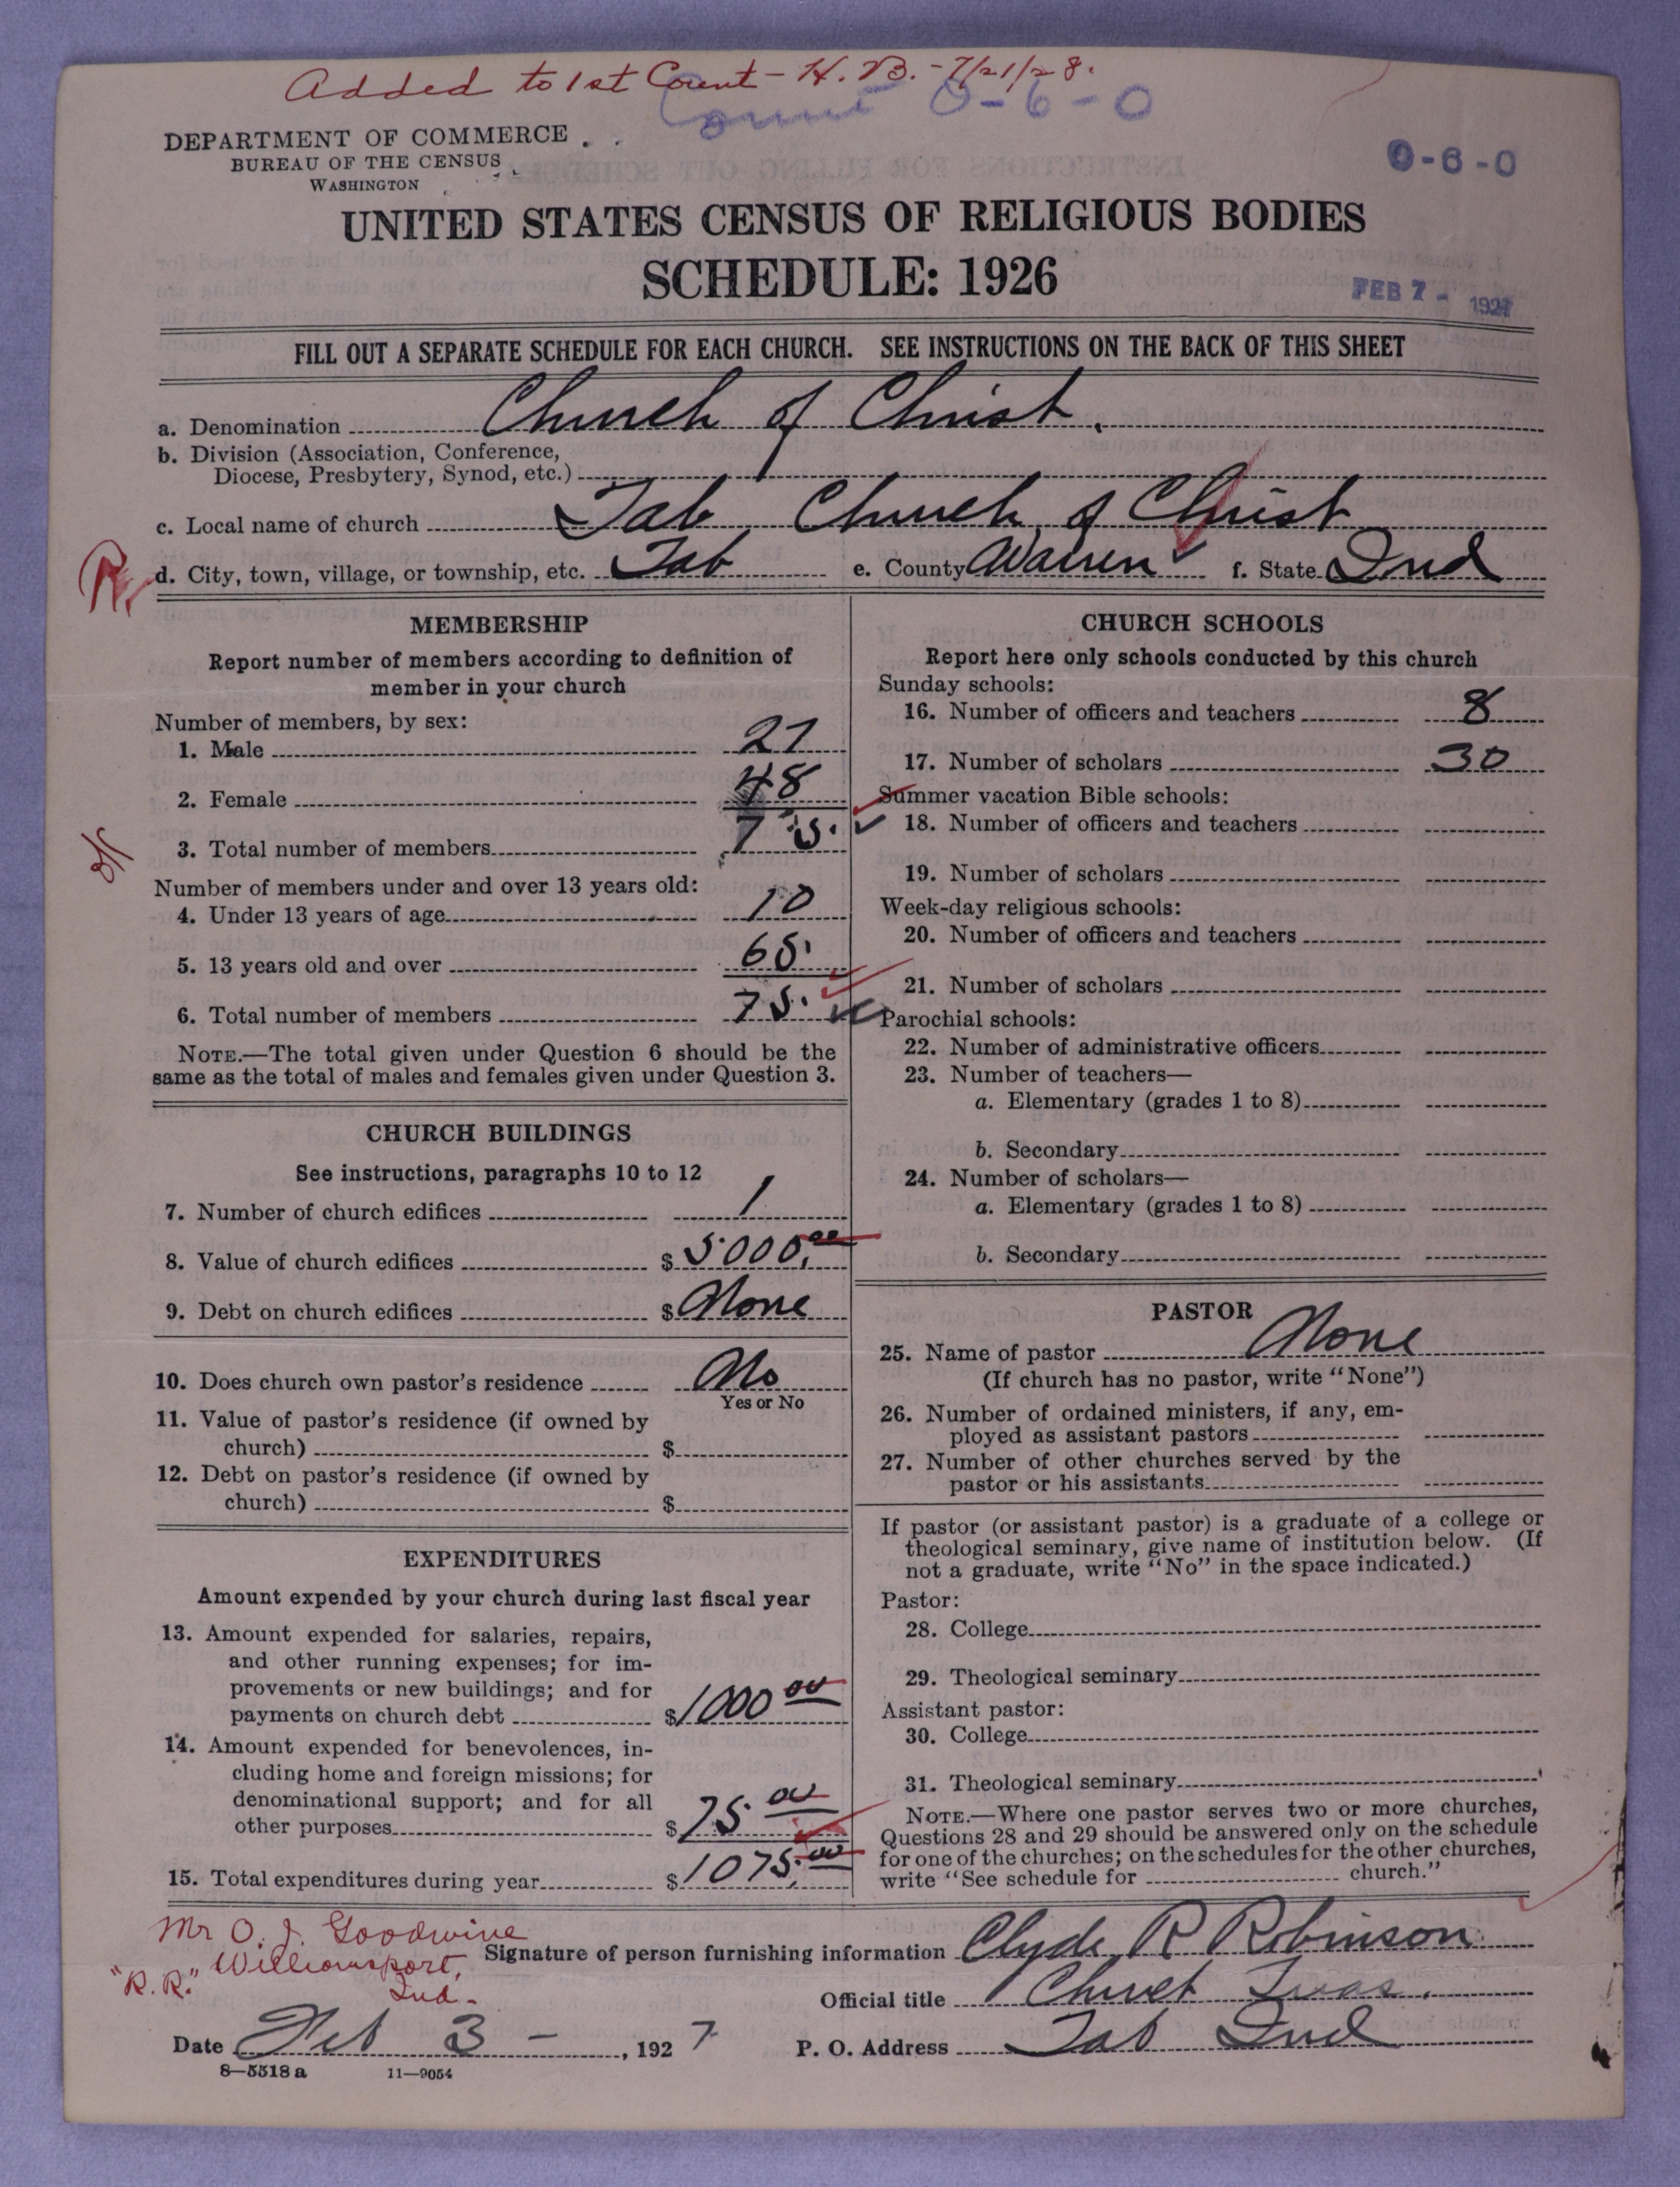 Added to 1st Count - H. B. - 7/21/28.
Count 0-6-0
DEPARTMENT OF COMMERCE
BUREAU OF THE CENSUS
WASHINGTON
0-6-0
UNITED STATES CENSUS OF RELIGIOUS BODIES
SCHEDULE: 1926
FEB 7 - 1927
FILL OUT A SEPARATE SCHEDULE FOR EACH CHURCH. SEE INSTRUCTIONS ON THE BACK OF THIS SHEET
a. Denomination Church of Christ.
b. Division (Association, Conference,
Diocese, Presbytery, Synod, etc.)
c. Local name of church Tab Church of Christ
R. d. City, town, village, or township, etc. Tab e. County Warren f. State Ind
MEMBERSHIP
Report number of members according to definition of
member in your church
Number of members, by sex:
1. Male 27
2. Female 48
3. Total number of members 75.
Number of members under and over 13 years old:
4. Under 13 years of age 10
5. 13 years old and over 65.
6. Total number of members 75.
NOTE.—The total given under Question 6 should be the
same as the total of males and females given under Question 3.
CHURCH BUILDINGS
See instructions, paragraphs 10 to 12
7. Number of church edifices 1
8. Value of church edifices $ 5000.00
9. Debt on church edifices $ None
10. Does church own pastor's residence No
Yes or No
11. Value of pastor's residence (if owned by
church) $
12. Debt on pastor's residence (if owned by
church) $
EXPENDITURES
Amount expended by your church during last fiscal year
13. Amount expended for salaries, repairs,
and other running expenses; for im-
provements or new buildings; and for
payments on church debt $ 1000 00
14. Amount expended for benevolences, in-
cluding home and foreign missions; for
denominational support; and for all
other purposes $ 75. 00
15. Total expenditures during year $ 1075.00
CHURCH SCHOOLS
Report here only schools conducted by this church
Sunday schools:
16. Number of officers and teachers 8
17. Number of scholars 30
Summer vacation Bible schools:
18. Number of officers and teachers
19. Number of scholars
Week-day religious schools:
20. Number of officers and teachers
21. Number of scholars
Parochial schools:
22. Number of administrative officers
23. Number of teachers—
a. Elementary (grades 1 to 8)
b. Secondary
24. Number of scholars—
a. Elementary (grades 1 to 8)
b. Secondary
PASTOR
25. Name of pastor None
(If church has no pastor, write "None")
26. Number of ordained ministers, if any, em-
ployed as assistant pastors
27. Number of other churches served by the
pastor or his assistants
If pastor (or assistant pastor) is a graduate of a college or
theological seminary, give name of institution below. (If
not a graduate, write "No" in the space indicated.)
Pastor:
28. College
29. Theological seminary
Assistant pastor:
30. College
31. Theological seminary
NOTE.—Where one pastor serves two or more churches,
Questions 28 and 29 should be answered only on the schedule
for one of the churches; on the schedules for the other churches,
write "See schedule for church."
Mr O. J. Goodwine
Williamsport,
"R. R." Ind.
Signature of person furnishing information Clyde R Robinson
Official title Church Treas.
Date Feb 3 -, 1927 P. O. Address Tab Ind
8—5518 a 11—9054